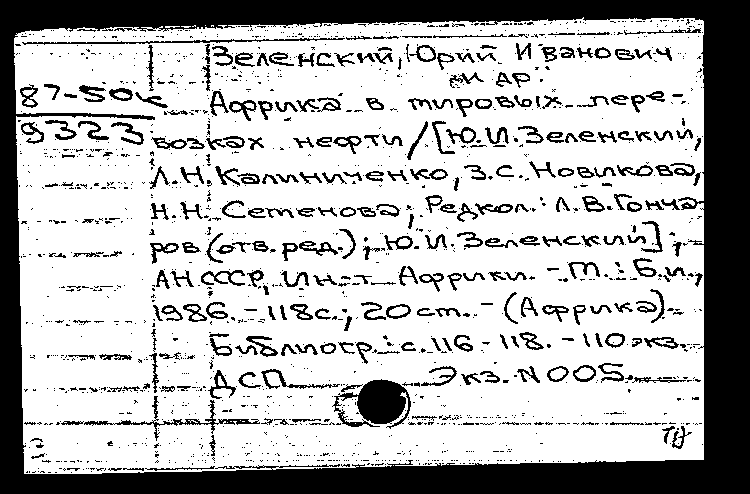 Зеленский, Юрий Иванович
и др.
87-50к
9323
Африка в мировых пере-
возках нефти / [Ю.И. Зеленский,
Л.Н. Калиниченко, З.С. Новикова,
Н.Н. Сетенова; Редкол.: Л.В. Гонча-
ров (отв. ред.); Ю.И. Зеленский];
АН СССР, Ин-т Африки. - М.: Б.и.,
1986. - 118с.; 20 ст. - (Африка).
Библиогр.: с. 116 - 118. - 110 экз.
ДСП Экз. N 005.